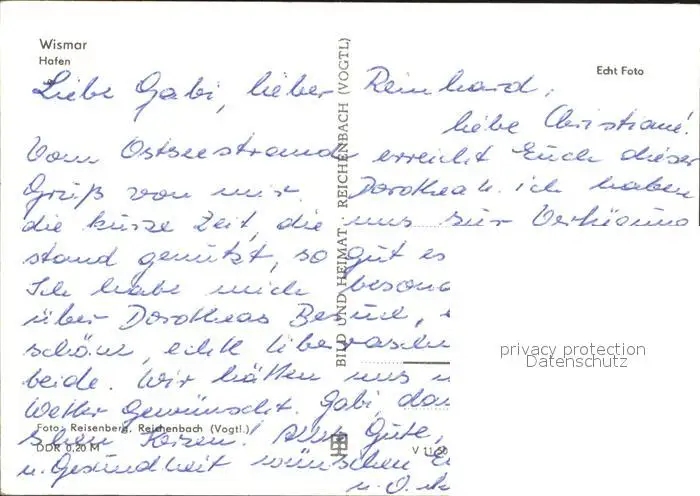 Wismar
Hafen
Echt Foto
Liebe Gabi, lieber Reinhard,
liebe Christiane!
Vom Ostseestrand erreicht Euch dieser
Gruß von mir. Dorothea u. ich haben
die kurze Zeit, die uns zur Verfügung
stand genutzt, so gut es
Ich habe mich beson
über Dorotheas Besuch,
schöne, echte Überrasch
beide. Wir hätten uns
Wetter gewünscht. Gabi, dan
schen Herzen! Alles Gute,
u. Gesundheit wünschen E
u. O.
BILD UND HEIMAT REICHENBACH (VOGTL)
Foto: Reisenberg, Reichenbach (Vogtl.)
DDR 0,20 M
V 11 50
privacy protection
Datenschutz